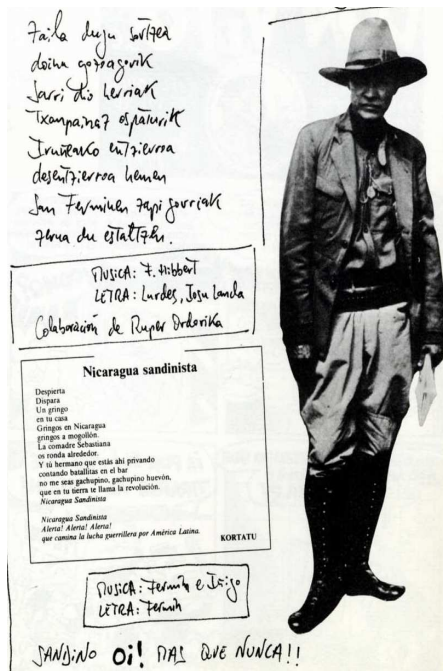 Zaila dugu sortzea
doinu gozoagorik
Sarri dio herriak
Txanpainaz ospaturik
Iruñeako entzierroa
desentzierroa hemen
San Ferminen zapi gorriak
zerua du estaltzen.
MUSICA: F. Hibbert
LETRA: Lurdes, Josu Landa
Colaboración de Ruper Ordorika
Nicaragua sandinista
Despierta
Dispara
Un gringo
en tu casa
Gringos en Nicaragua
gringos a mogollón.
La comadre Sebastiana
os ronda alrededor.
Y tú hermano que estás ahí privando
contando batallitas en el bar
no me seas gachupino, gachupino huevón,
que en tu tierra te llama la revolución.
Nicaragua Sandinista
Nicaragua Sandinista
Alerta! Alerta! Alerta!
que camina la lucha guerrillera por América Latina.
KORTATU
MUSICA: Fermin e Iñigo
LETRA: Fermin
SANDINO Oi! MAS QUE NUNCA!!